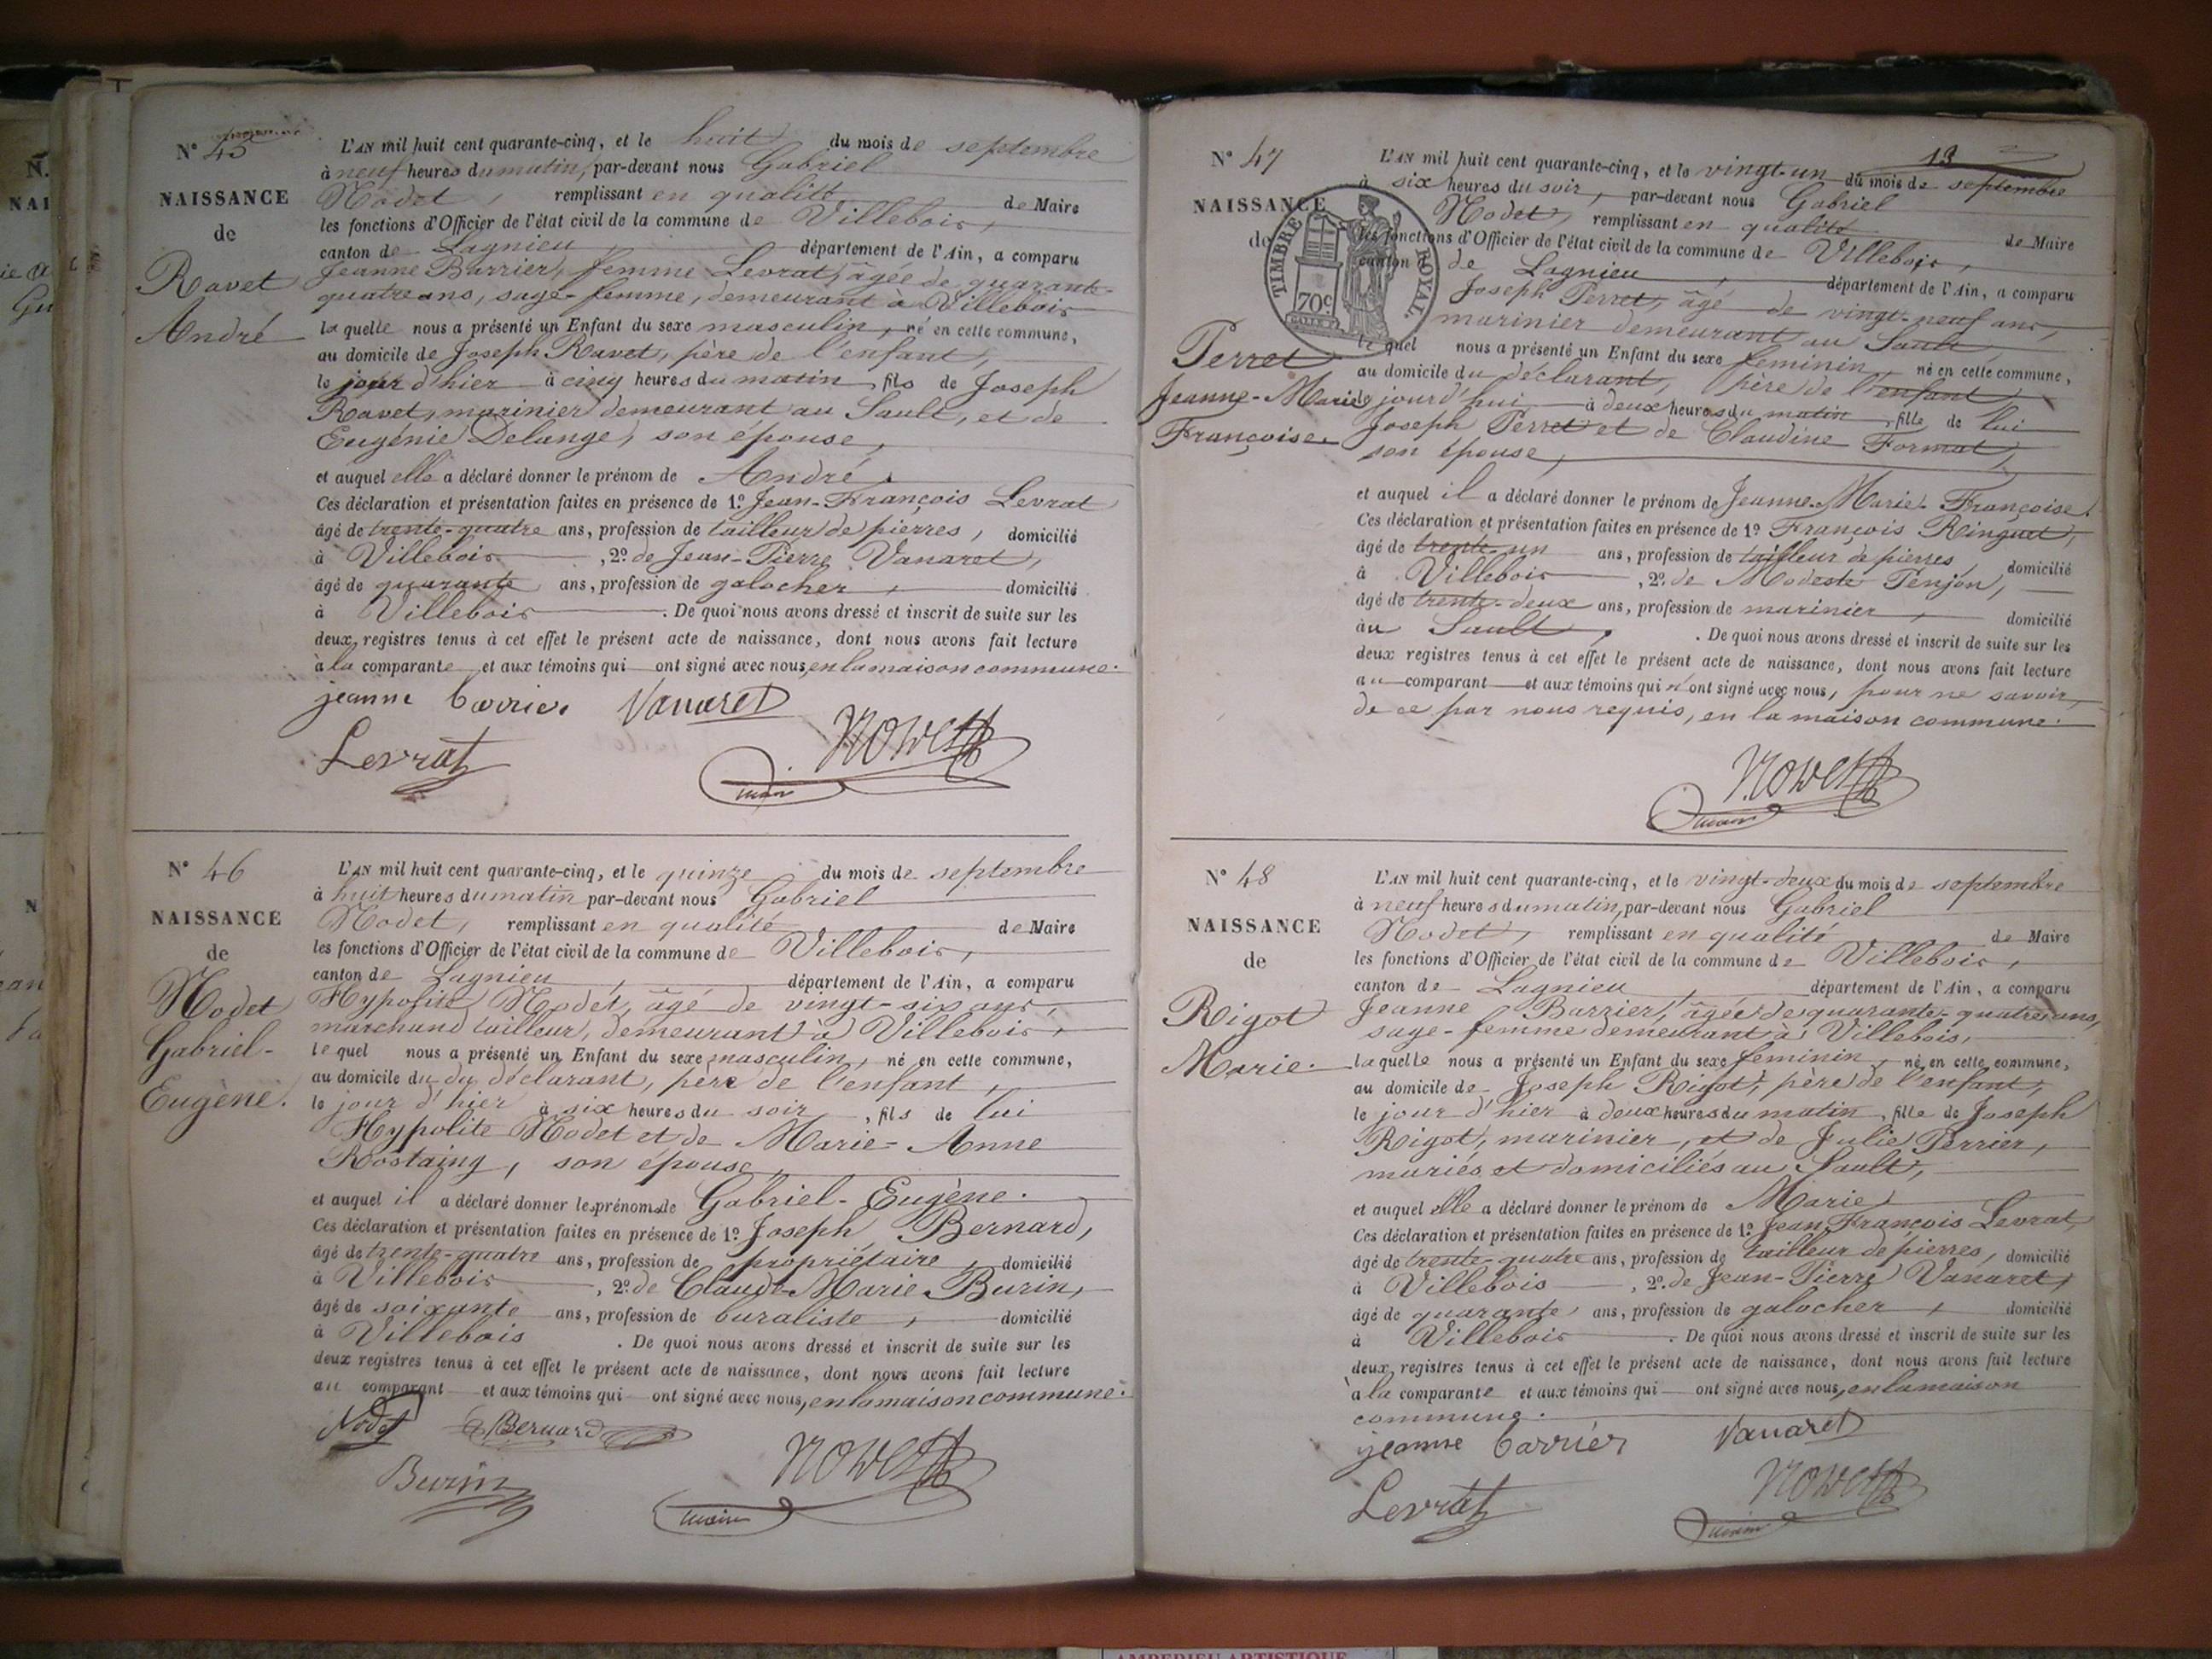 N° 45
NAISSANCE
de
Ravet
André
L'AN mil huit cent quarante-cinq, et le huit du mois de septembre
à neuf heures du matin, par-devant nous Gabriel
Nodet, remplissant en qualité de Maire
les fonctions d'Officier de l'état civil de la commune de Villebois,
canton de Lagnieu, département de l'Ain, a comparu
Jeanne Barrier, femme Levrat, âgée de quarante-
quatre ans, sage-femme, demeurant à Villebois
laquelle nous a présenté un Enfant du sexe masculin, né en cette commune,
au domicile de Joseph Ravet, père de l'enfant,
le jour d'hier à cinq heures du matin, fils de Joseph
Ravet, marinier demeurant au Sault, et de
Eugénie Delange, son épouse,
et auquel elle a déclaré donner le prénom de André.
Ces déclaration et présentation faites en présence de 1° Jean-François Levrat
âgé de trente-quatre ans, profession de tailleur de pierres, domicilié
à Villebois, 2° de Jean-Pierre Vanaret,
âgé de quarante ans, profession de galocher, domicilié
à Villebois. De quoi nous avons dressé et inscrit de suite sur les
deux registres tenus à cet effet le présent acte de naissance, dont nous avons fait lecture
à la comparante et aux témoins qui ont signé avec nous, en la maison commune.
jeanne barrier Vanaret
Levrat Nodet
maire
N° 46
NAISSANCE
de
Nodet
Gabriel-
Eugène.
L'AN mil huit cent quarante-cinq, et le quinze du mois de septembre
à huit heures du matin par-devant nous Gabriel
Nodet, remplissant en qualité de Maire
les fonctions d'Officier de l'état civil de la commune de Villebois,
canton de Lagnieu, département de l'Ain, a comparu
Hypolite Nodet, âgé de vingt-six ans,
marchand tailleur, demeurant à Villebois,
lequel nous a présenté un Enfant du sexe masculin, né en cette commune,
au domicile du du déclarant, père de l'enfant,
le jour d'hier à six heures du soir, fils de lui
Hypolite Nodet et de Marie-Anne
Rostaing, son épouse,
et auquel il a déclaré donner les prénoms de Gabriel-Eugène.
Ces déclaration et présentation faites en présence de 1° Joseph Bernard,
âgé de trente-quatre ans, profession de propriétaire, domicilié
à Villebois, 2° de Claude-Marie Burin,
âgé de soixante ans, profession de buraliste, domicilié
à Villebois. De quoi nous avons dressé et inscrit de suite sur les
deux registres tenus à cet effet le présent acte de naissance, dont nous avons fait lecture
au comparant et aux témoins qui ont signé avec nous, en la maison commune.
Nodet Bernard
Burin Nodet
maire
13
N° 47
NAISSANCE
de
Perret
Jeanne-Marie
Françoise.
TIMBRE ROYAL.
70c
L'AN mil huit cent quarante-cinq, et le vingt-un du mois de septembre
à six heures du soir, par-devant nous Gabriel
Nodet, remplissant en qualité de Maire
les fonctions d'Officier de l'état civil de la commune de Villebois,
canton de Lagnieu, département de l'Ain, a comparu
Joseph Perret, âgé de vingt-neuf ans,
marinier demeurant au Sault,
lequel nous a présenté un Enfant du sexe féminin, né en cette commune,
au domicile du déclarant, père de l'enfant,
le jourd'hui à deux heures du matin, fille de lui
Joseph Perret et de Claudine Format,
son épouse,
et auquel il a déclaré donner le prénom de Jeanne-Marie-Françoise.
Ces déclaration et présentation faites en présence de 1° François Ringuet,
âgé de trente-un ans, profession de tailleur de pierres, domicilié
à Villebois, 2° de Modeste Tenjon,
âgé de trente-deux ans, profession de marinier, domicilié
au Sault,. De quoi nous avons dressé et inscrit de suite sur les
deux registres tenus à cet effet le présent acte de naissance, dont nous avons fait lecture
au comparant et aux témoins qui n'ont signé avec nous, pour ne savoir,
de ce par nous requis, en la maison commune.
Nodet
maire
N° 48
NAISSANCE
de
Rigot
Marie.
L'AN mil huit cent quarante-cinq, et le vingt-deux du mois de septembre
à neuf heures du matin, par-devant nous Gabriel
Nodet, remplissant en qualité de Maire
les fonctions d'Officier de l'état civil de la commune de Villebois,
canton de Lagnieu, département de l'Ain, a comparu
Jeanne Barrier, âgée de quarante-quatre ans,
sage-femme demeurant à Villebois,
laquelle nous a présenté un Enfant du sexe féminin, né en cette commune,
au domicile de Joseph Rigot, père de l'enfant,
le jour d'hier à deux heures du matin, fille de Joseph
Rigot, marinier, et de Julie Perrier,
mariés et domiciliés au Sault,
et auquel elle a déclaré donner le prénom de Marie
Ces déclaration et présentation faites en présence de 1° Jean François Levrat,
âgé de trente-quatre ans, profession de tailleur de pierres, domicilié
à Villebois, 2° de Jean-Pierre Vanaret,
âgé de quarante ans, profession de galocher, domicilié
à Villebois. De quoi nous avons dressé et inscrit de suite sur les
deux registres tenus à cet effet le présent acte de naissance, dont nous avons fait lecture
à la comparante et aux témoins qui ont signé avec nous, en la maison
commune.
jeanne barrier Vanaret
Levrat Nodet
maire